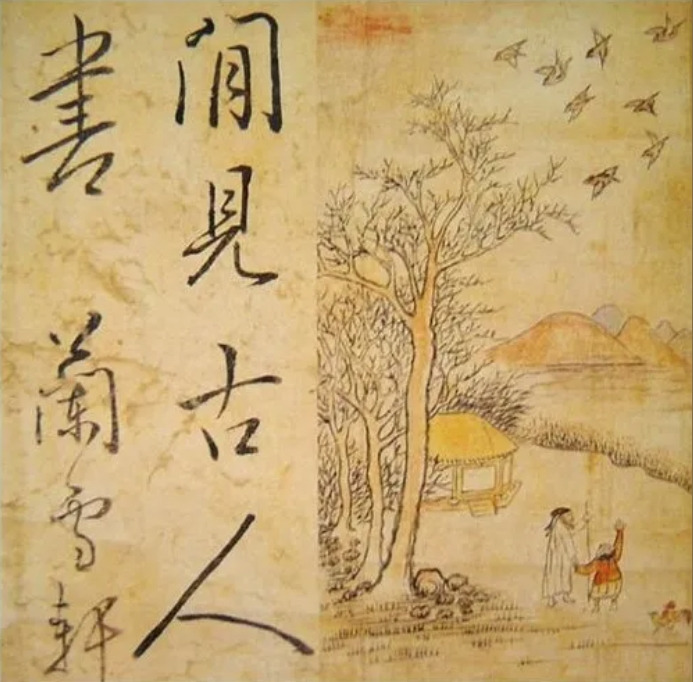 閒見古人
書 蘭雪軒